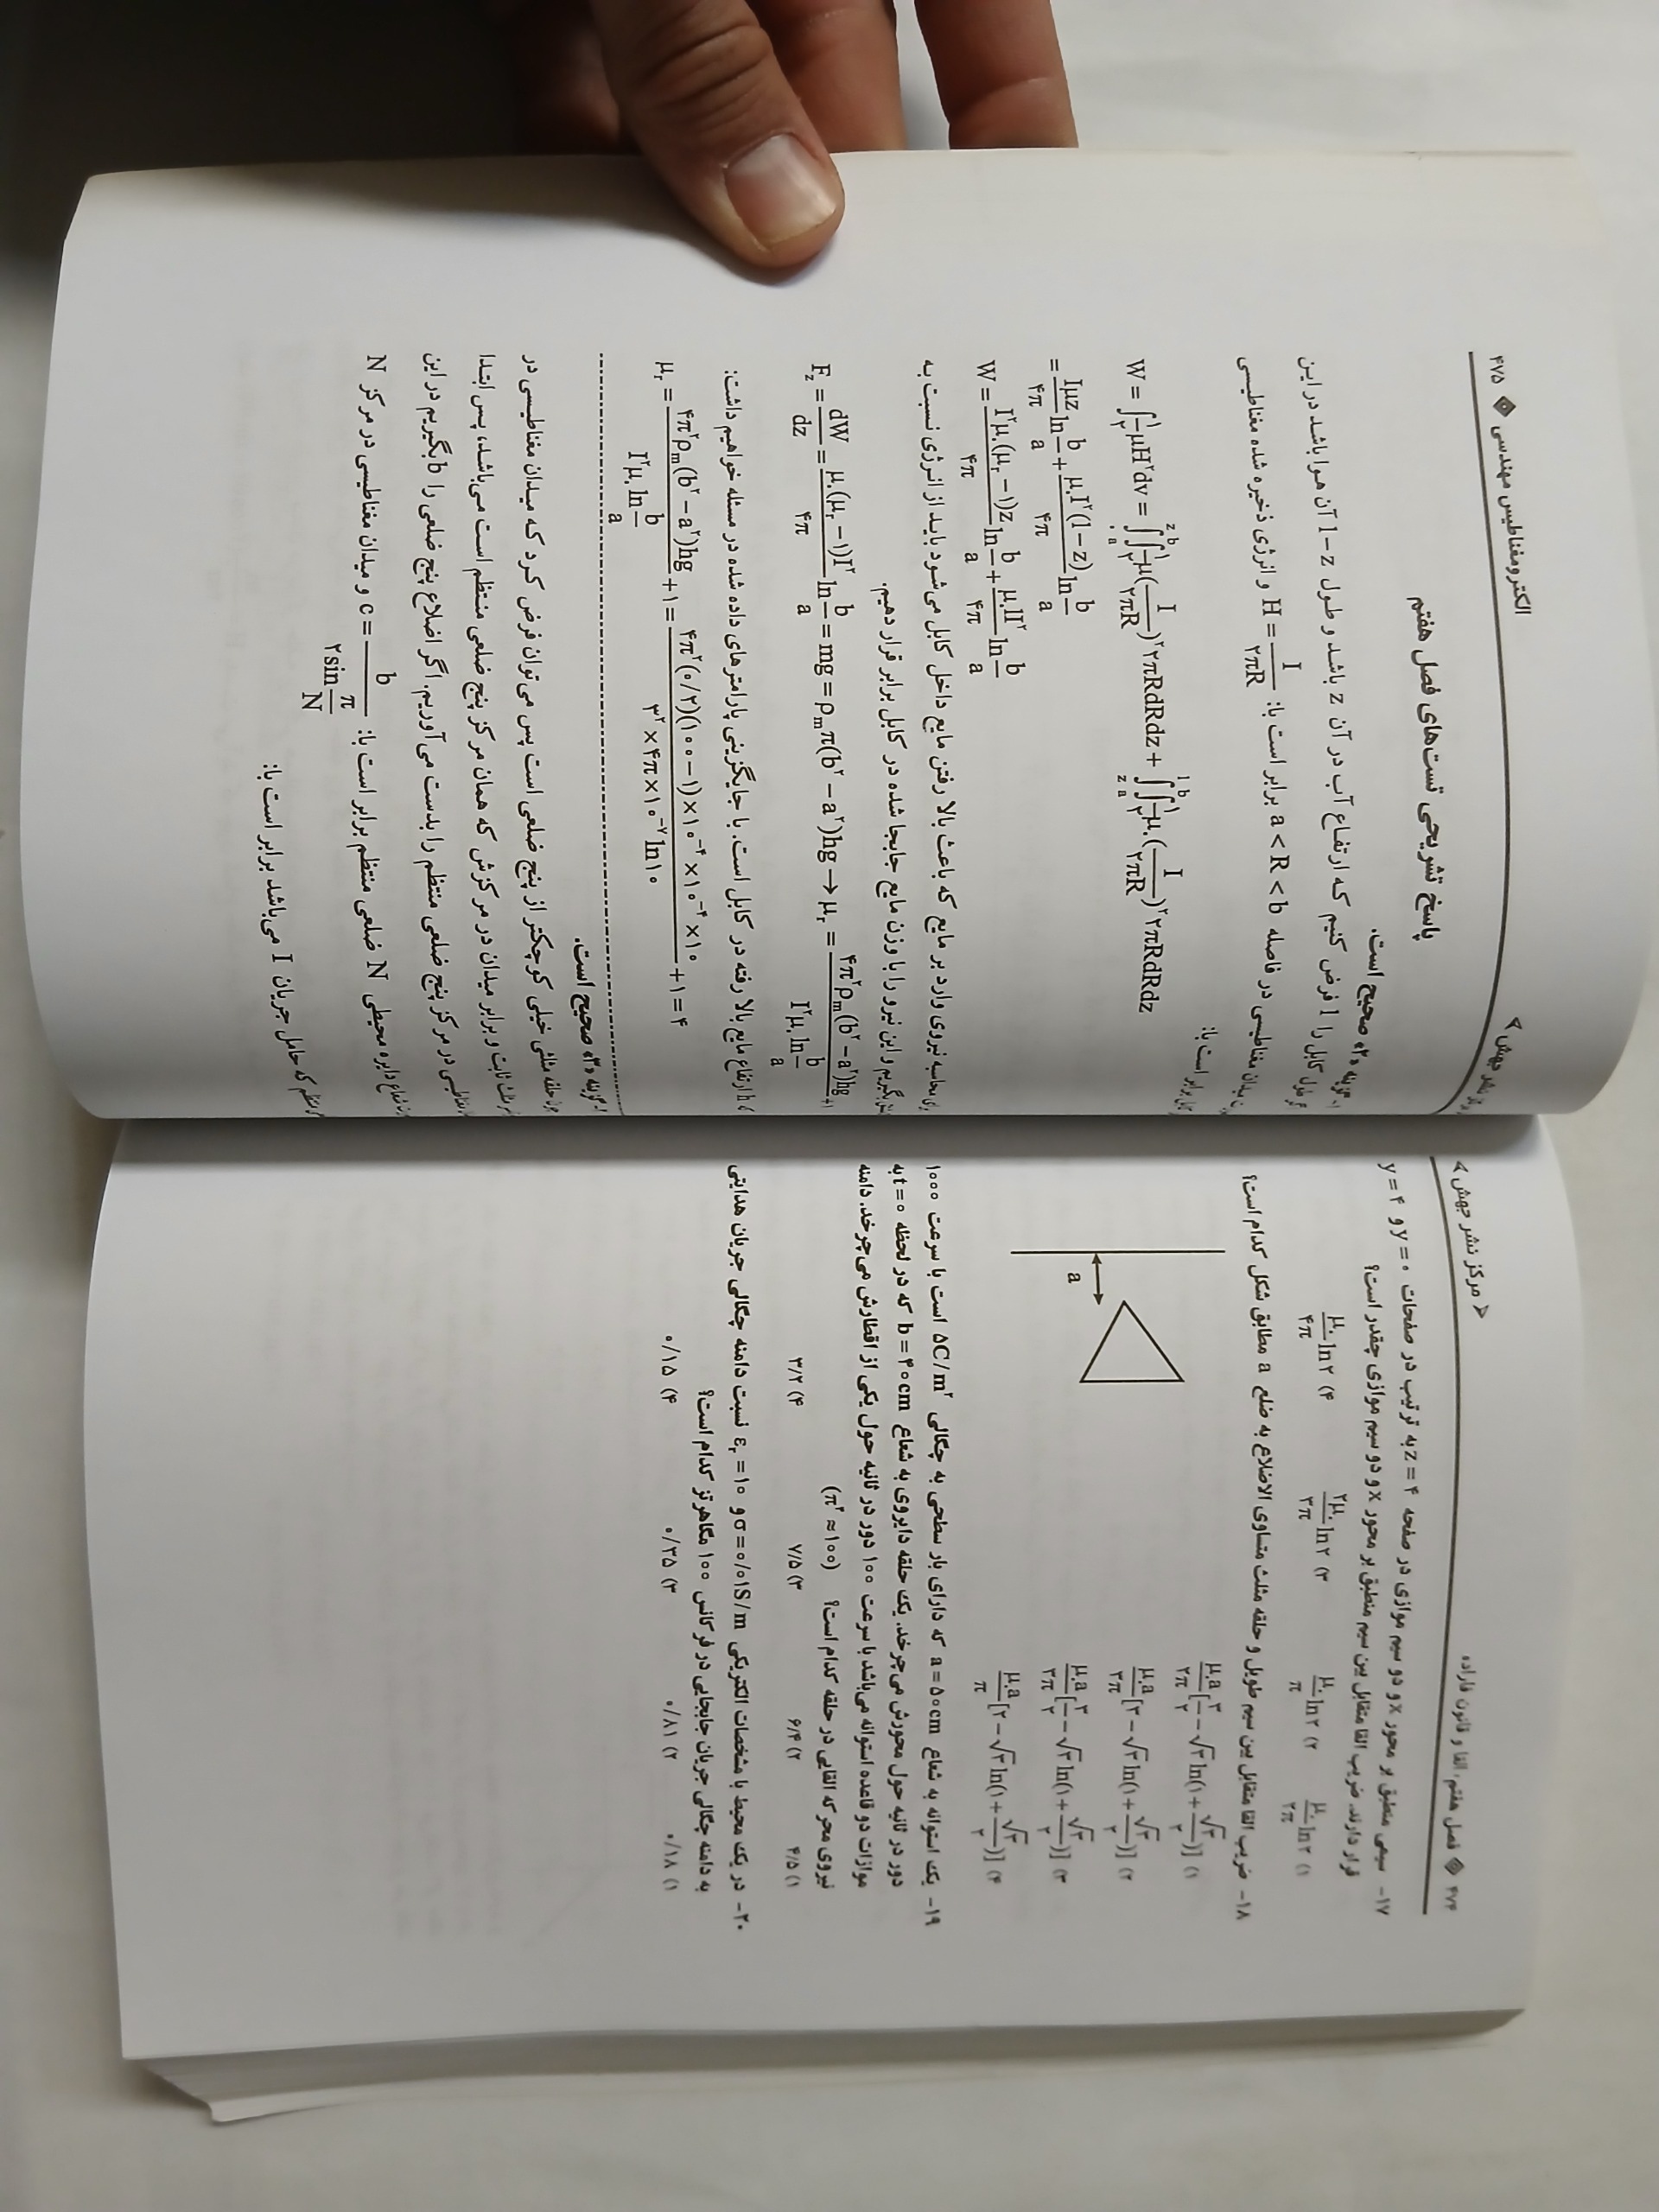 ۴۷۴ ◈ فصل هفتم: القا و قانون فاراده
< مرکز نشر جهش >
۱۷- سیمی منطبق بر محور x و دو سیم موازی در صفحه z = ۴ به ترتیب در صفحات y = ۰ و y = ۴
قرار دارند. ضریب القا متقابل بین سیم منطبق بر محور x و دو سیم موازی چقدر است؟
۱) μ۰/۲π ln۲ ۲) μ۰/π ln۲ ۳) ۲μ۰/۳π ln۲ ۴) μ۰/۴π ln۲
۱۸- ضریب القا متقابل بین سیم طویل و حلقه مثلث متساوی الاضلاع به ضلع a مطابق شکل کدام است؟
a
۱۹- یک استوانه به شعاع a = ۵۰cm که دارای بار سطحی به چگالی ۵C/m۲ است با سرعت ۱۰۰۰
دور در ثانیه حول محورش می‌چرخد. یک حلقه دایروی به شعاع b = ۴۰cm که در لحظه t = ۰ به
موازات دو قاعده استوانه می‌باشد با سرعت ۱۰۰ دور در ثانیه حول یکی از اقطارش می‌چرخد. دامنه
نیروی محرکه القایی در حلقه کدام است؟ (π۲ ≈ ۱۰۰)
۱) ۴/۵ ۲) ۶/۴ ۳) ۷/۵ ۴) ۳/۲
۲۰- در یک محیط با مشخصات الکتریکی σ = ۰/۰۱S/m و εr = ۱۰ نسبت دامنه چگالی جریان هدایتی
به دامنه چگالی جریان جابجایی در فرکانس ۱۰۰ مگاهرتز کدام است؟
۱) ۰/۱۸ ۲) ۰/۸۱ ۳) ۰/۳۵ ۴) ۰/۱۵
نشر جهش >
الکترومغناطیس مهندسی ◈ ۴۷۵
پاسخ تشریحی تست‌های فصل هفتم
۱- گزینه «۲» صحیح است.
طول کابل را l فرض کنیم که ارتفاع آب در آن z باشد و طول l − z آن هوا باشد در این
میدان مغناطیسی در فاصله a < R < b برابر است با: H = I/۲πR و انرژی ذخیره شده مغناطیسی
برابر است با:
W = ∫ ۱/۲ μH۲dv = ∫∫ ۱/۲ μ(I/۲πR)۲ ۲πRdRdz + ∫∫ ۱/۲ μ۰(I/۲πR)۲ ۲πRdRdz
= Iμz/۴π ln b/a + μ۰I۲(l − z)/۴π ln b/a
W = I۲μ۰(μr − ۱)z/۴π ln b/a + μ۰lI۲/۴π ln b/a
محاسبه نیروی وارد بر مایع که باعث بالا رفتن مایع داخل کابل می‌شود باید از انرژی نسبت به
بگیریم و این نیرو را با وزن مایع جابجا شده در کابل برابر قرار دهیم.
Fz = dW/dz = μ۰(μr − ۱)I۲/۴π ln b/a = mg = ρmπ(b۲ − a۲)hg → μr = ۴π۲ρm(b۲ − a۲)hg/I۲μ۰ ln b/a +۱
h ارتفاع مایع بالا رفته در کابل است. با جایگزینی پارامترهای داده شده در مسئله خواهیم داشت:
μr = ۴π۲ρm(b۲ − a۲)hg/I۲μ۰ ln b/a + ۱ = ۴π۲(۰/۲)(۱۰۰ − ۱)×۱۰−۴×۱۰−۴×۱۰/۳۲×۴π×۱۰−۷ ln۱۰ + ۱ = ۴
گزینه «۳» صحیح است.
حلقه مثلثی خیلی کوچکتر از پنج ضلعی است پس می‌توان فرض کرد که میدان مغناطیسی در
مثلث ثابت و برابر میدان در مرکزش که همان مرکز پنج ضلعی منتظم است می‌باشد، پس ابتدا
در مرکز پنج ضلعی منتظم را بدست می‌آوریم. اگر اضلاع پنج ضلعی را b بگیریم در این
شعاع دایره محیطی N ضلعی منتظم برابر است با: c = b/۲sin π/N و میدان مغناطیسی در مرکز N
منتظم که حامل جریان I می‌باشد برابر است با: